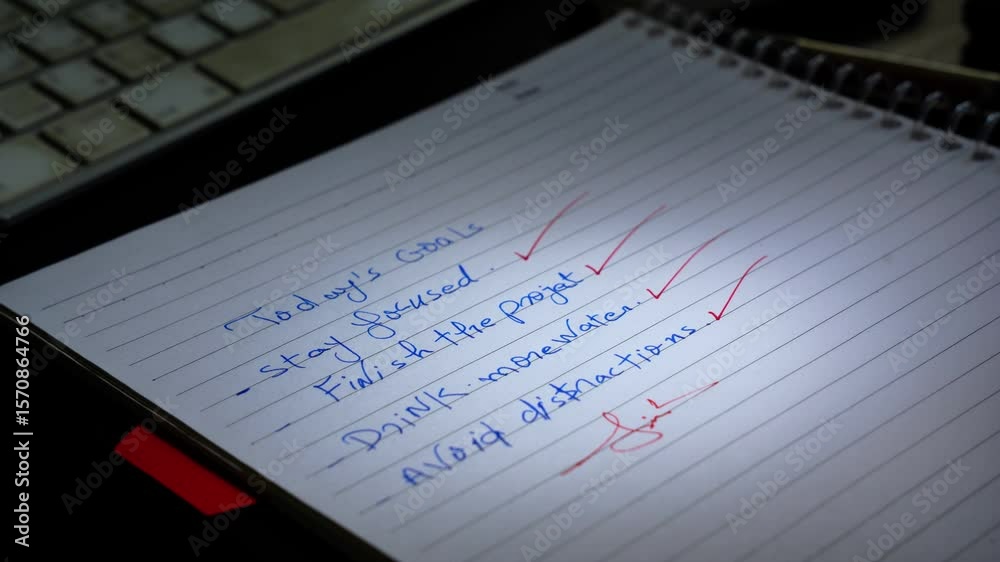 Today's Goals
- Stay focused.
- Finish the projet
- Drink more water.
- Avoid distractions.
Adobe Stock | #1570864766